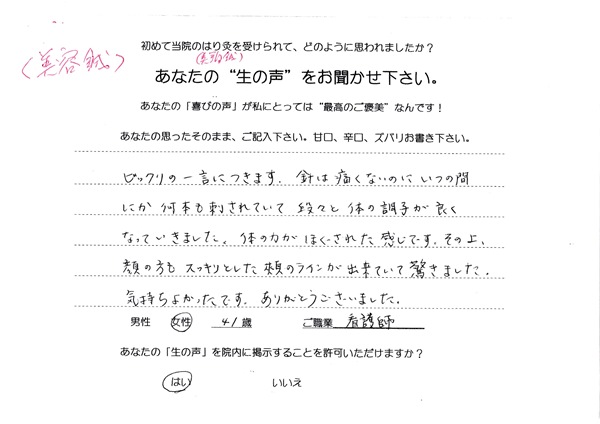 初めて当院のはり灸を受けられて、どのように思われましたか?
(美容鍼)
(美容鍼)
あなたの“生の声”をお聞かせ下さい。
あなたの「喜びの声」が私にとっては“最高のご褒美”なんです!
あなたの思ったそのまま、ご記入下さい。甘口、辛口、ズバリお書き下さい。
ビックリの一言につきます。針は痛くないのにいつの間
にか何本も刺されていて段々と体の調子が良く
なっていきました。体の力がほぐされた感じです。その上、
顔の方もスッキリとした頬のラインが出来ていて驚きました。
気持ちよかったです。ありがとうございました。
男性 女性 41歳 ご職業 看護師
あなたの「生の声」を院内に掲示することを許可いただけますか?
はい いいえ